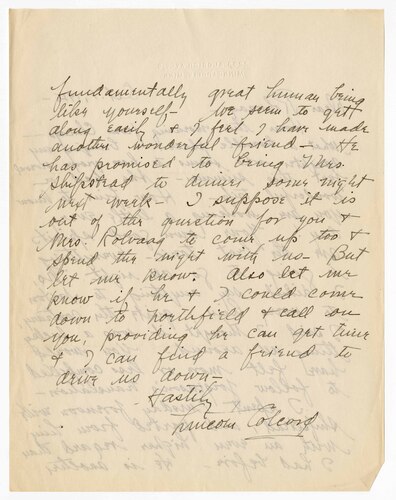 fundamentally great human being
like yourself- We seem to get
along easily & I feel I have made
another wonderful friend- He
has promised to bring Mrs.
Shipstead to dinner some night
next week- I suppose it is
out of the question for you &
Mrs. Rolvaag to come up too &
spend the night with us- But
let me know. Also let me
know if he & I could come
down to Northfield & call on
you, providing he can get time
& I can find a friend to
drive us down-
Hastily
Lincoln Colcord